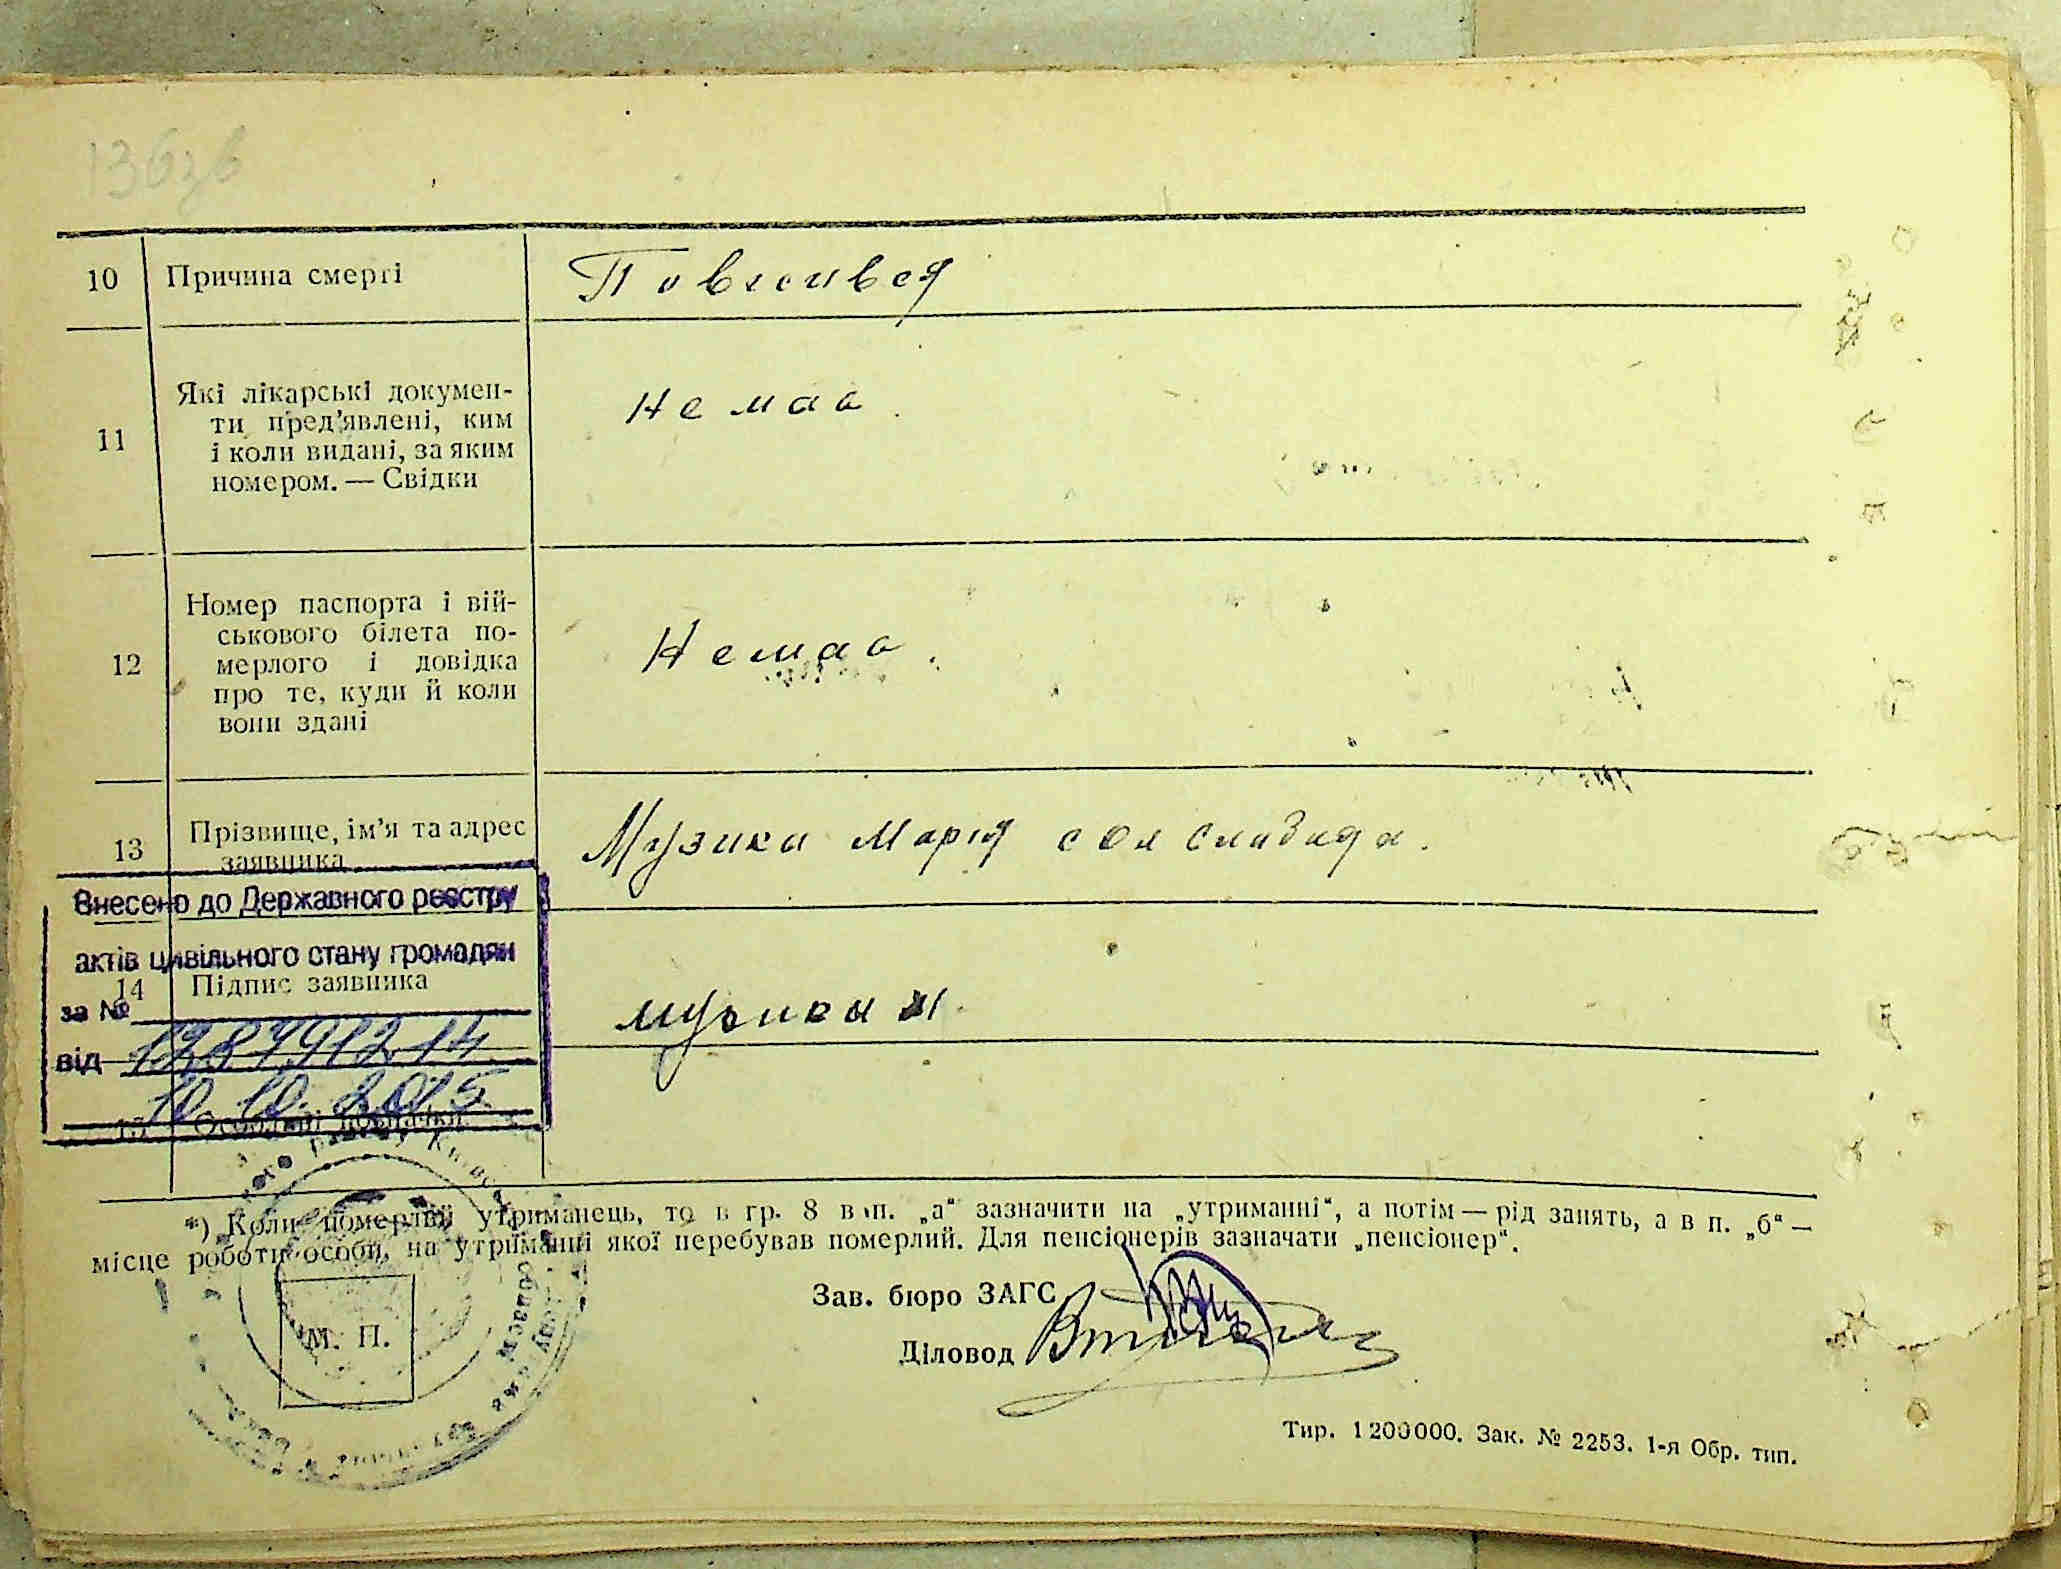 136зв
10 Причина смерті Повесивея
11 Які лікарські докумен-
ти пред'явлені, ким
і коли видані, за яким
номером. — Свідки
Не має
12 Номер паспорта і вій-
ськового білета по-
мерлого і довідка
про те, куди й коли
вони здані
Немає
13 Прізвище, ім'я та адрес
заявника
Музика Марія сел Слобода.
Внесено до Державного реєстру
актів цивільного стану громадян
14 Підпис заявника
Музика М.
за №
від 1287991214
10.10.2015
15 Особливі позначки
*) Коли померлий утриманець, то в гр. 8 в п. „а“ зазначити на „утриманні“, а потім — рід занять, а в п. „б“ —
місце роботи особи, на утриманні якої перебував померлий. Для пенсіонерів зазначати „пенсіонер“.
Зав. бюро ЗАГС
Діловод
М. П.
Тир. 1200000. Зак. № 2253. 1-я Обр. тип.